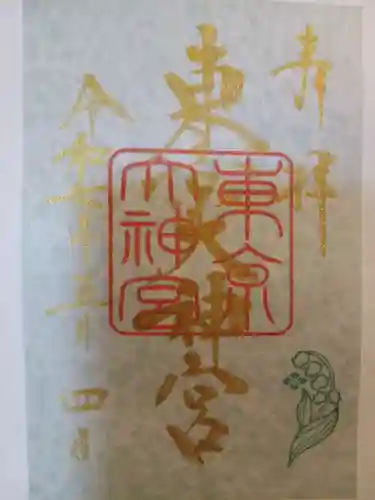 奉拝
東京大神宮
令和
四月
東京
大神宮